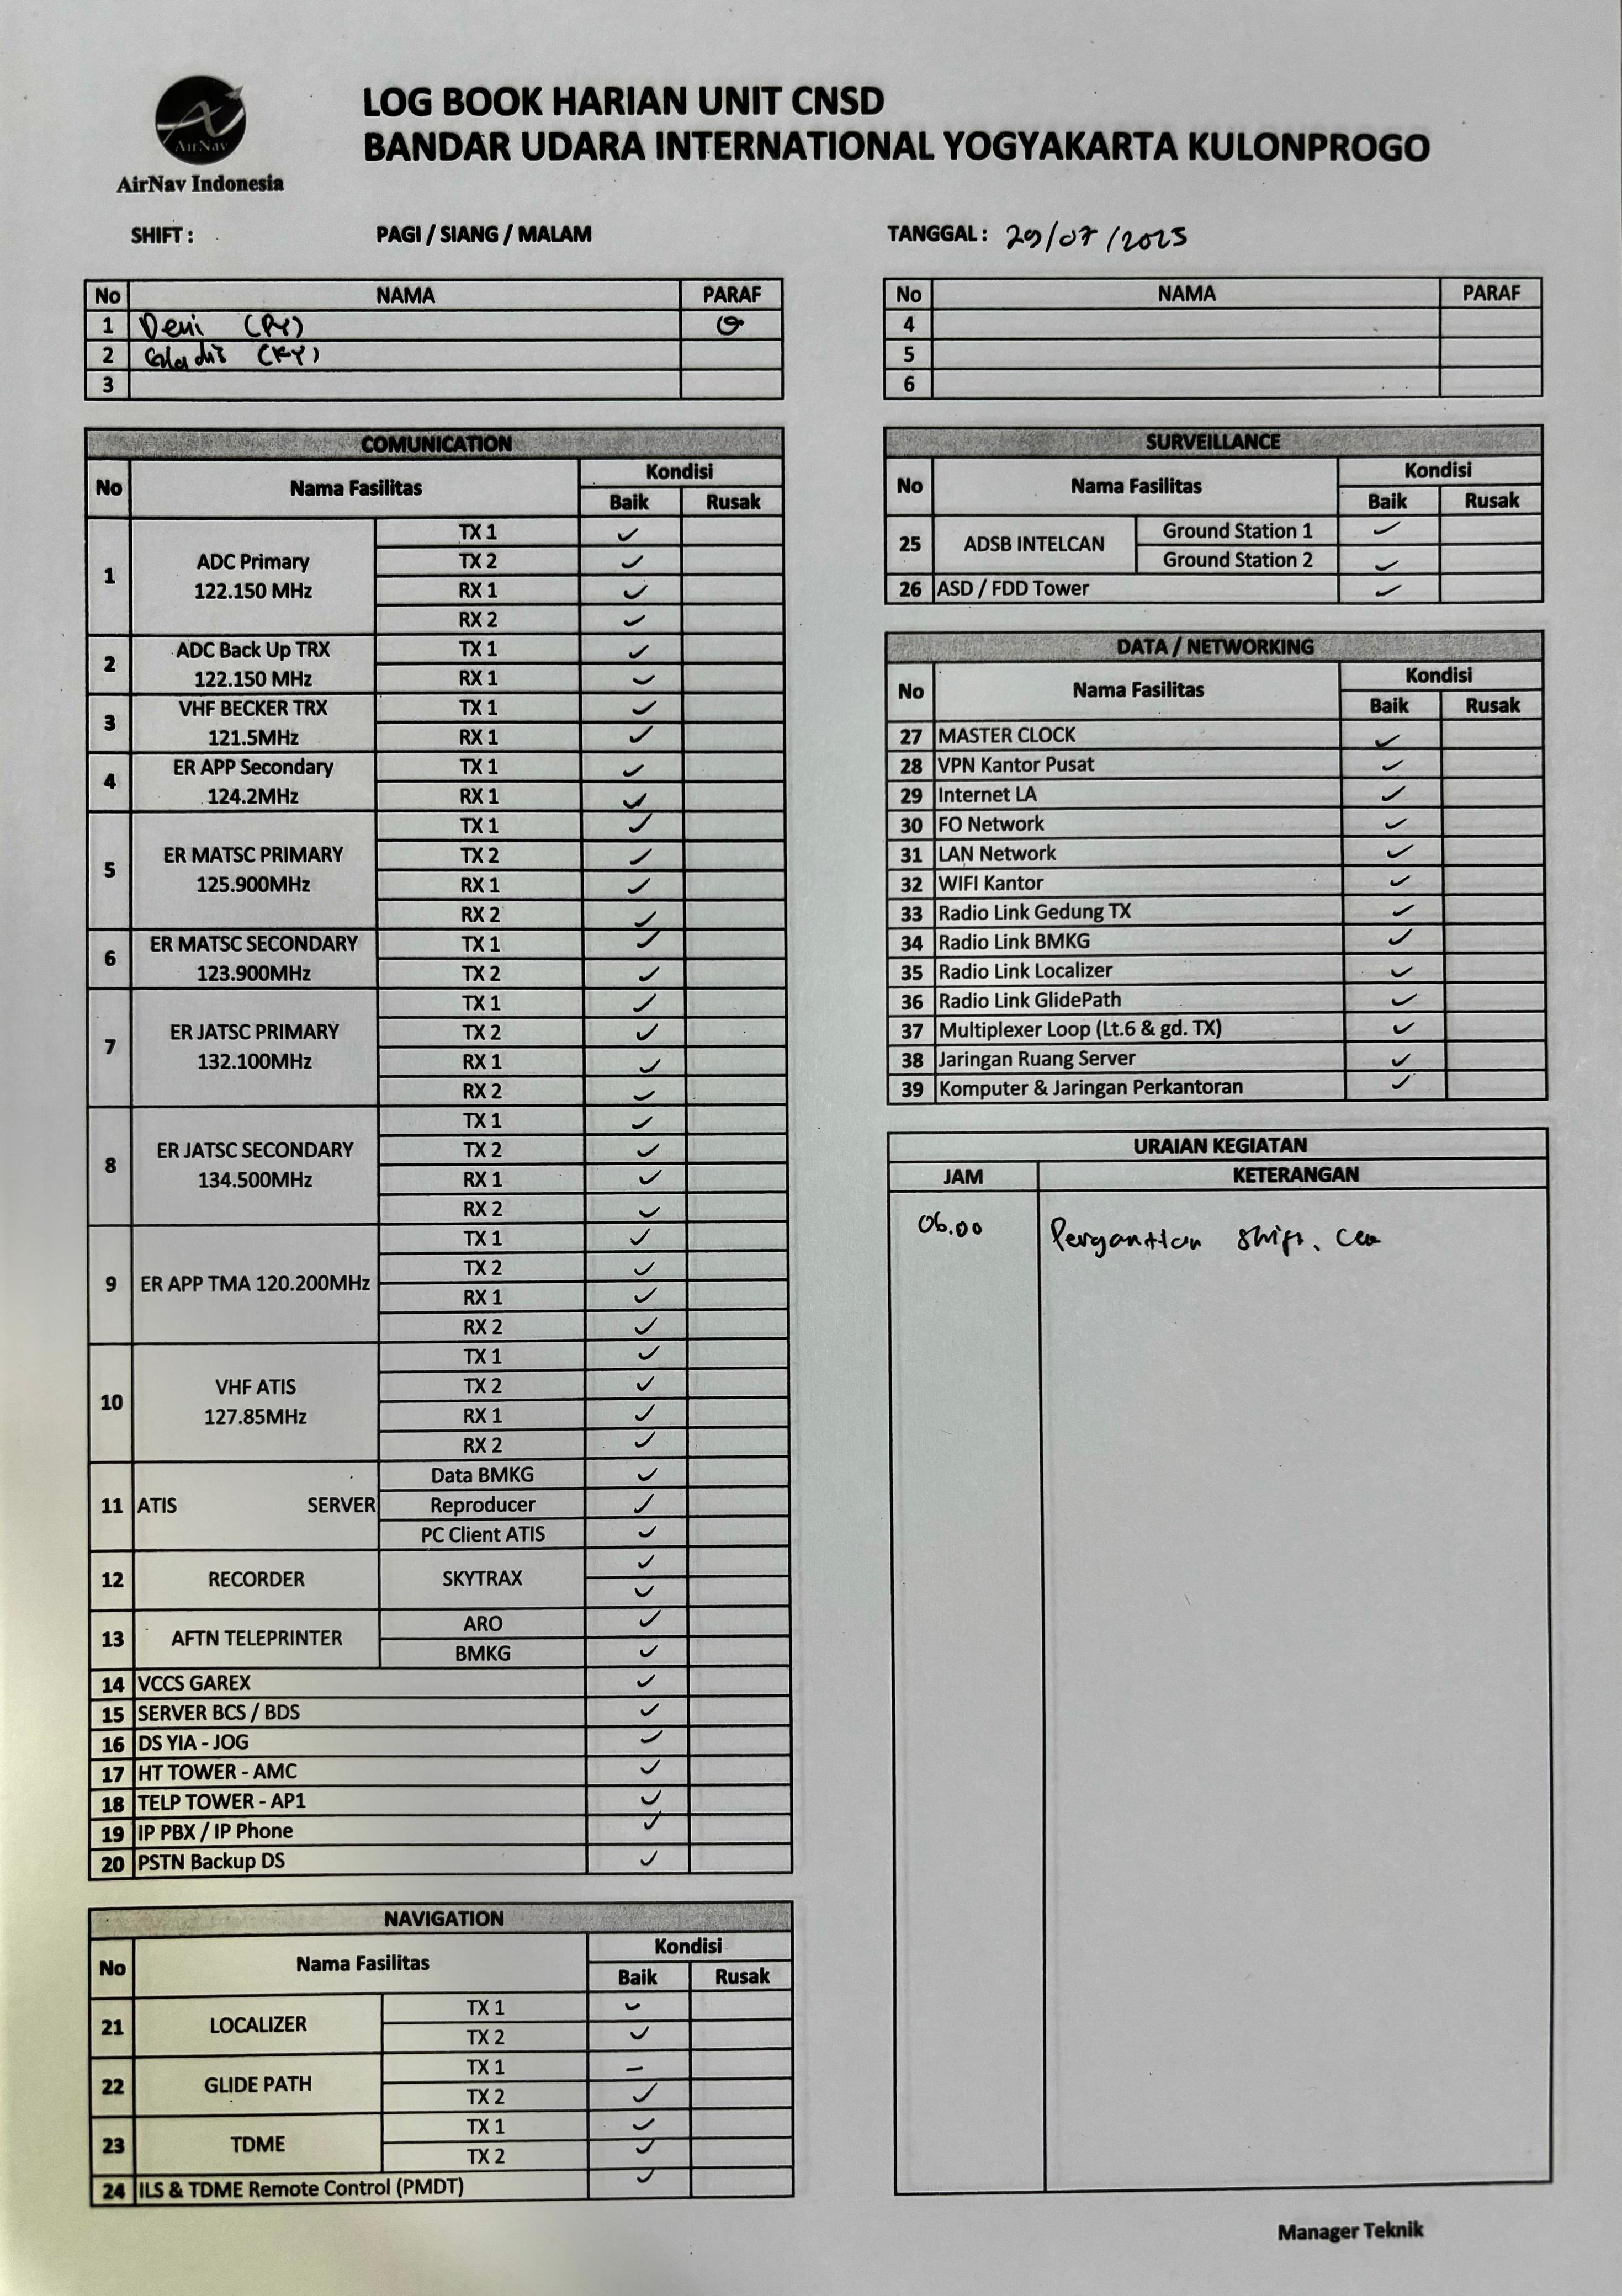 AirNav
AirNav Indonesia
LOG BOOK HARIAN UNIT CNSD
BANDAR UDARA INTERNATIONAL YOGYAKARTA KULONPROGO
SHIFT : PAGI / SIANG / MALAM
TANGGAL : 29/07/2025
No NAMA PARAF
1 Deni (PY)
2 (KY)
3
No NAMA PARAF
4
5
6
COMUNICATION
No Nama Fasilitas Kondisi
Baik Rusak
1 ADC Primary 122.150 MHz TX 1 ✓
TX 2 ✓
RX 1 ✓
RX 2 ✓
2 ADC Back Up TRX 122.150 MHz TX 1 ✓
RX 1 ✓
3 VHF BECKER TRX 121.5MHz TX 1 ✓
RX 1 ✓
4 ER APP Secondary 124.2MHz TX 1 ✓
RX 1 ✓
5 ER MATSC PRIMARY 125.900MHz TX 1 ✓
TX 2 ✓
RX 1 ✓
RX 2 ✓
6 ER MATSC SECONDARY 123.900MHz TX 1 ✓
TX 2 ✓
7 ER JATSC PRIMARY 132.100MHz TX 1 ✓
TX 2 ✓
RX 1 ✓
RX 2 ✓
8 ER JATSC SECONDARY 134.500MHz TX 1 ✓
TX 2 ✓
RX 1 ✓
RX 2 ✓
9 ER APP TMA 120.200MHz TX 1 ✓
TX 2 ✓
RX 1 ✓
RX 2 ✓
10 VHF ATIS 127.85MHz TX 1 ✓
TX 2 ✓
RX 1 ✓
RX 2 ✓
11 ATIS SERVER Data BMKG ✓
Reproducer ✓
PC Client ATIS ✓
12 RECORDER SKYTRAX ✓
✓
13 AFTN TELEPRINTER ARO ✓
BMKG ✓
14 VCCS GAREX ✓
15 SERVER BCS / BDS ✓
16 DS YIA - JOG ✓
17 HT TOWER - AMC ✓
18 TELP TOWER - AP1 ✓
19 IP PBX / IP Phone ✓
20 PSTN Backup DS ✓
NAVIGATION
No Nama Fasilitas Kondisi
Baik Rusak
21 LOCALIZER TX 1 ✓
TX 2 ✓
22 GLIDE PATH TX 1 –
TX 2 ✓
23 TDME TX 1 ✓
TX 2 ✓
24 ILS & TDME Remote Control (PMDT) ✓
SURVEILLANCE
No Nama Fasilitas Kondisi
Baik Rusak
25 ADSB INTELCAN Ground Station 1 ✓
Ground Station 2 ✓
26 ASD / FDD Tower ✓
DATA / NETWORKING
No Nama Fasilitas Kondisi
Baik Rusak
27 MASTER CLOCK ✓
28 VPN Kantor Pusat ✓
29 Internet LA ✓
30 FO Network ✓
31 LAN Network ✓
32 WIFI Kantor ✓
33 Radio Link Gedung TX ✓
34 Radio Link BMKG ✓
35 Radio Link Localizer ✓
36 Radio Link GlidePath ✓
37 Multiplexer Loop (Lt.6 & gd. TX) ✓
38 Jaringan Ruang Server ✓
39 Komputer & Jaringan Perkantoran ✓
URAIAN KEGIATAN
JAM KETERANGAN
06.00 Pergantian shift.
Manager Teknik